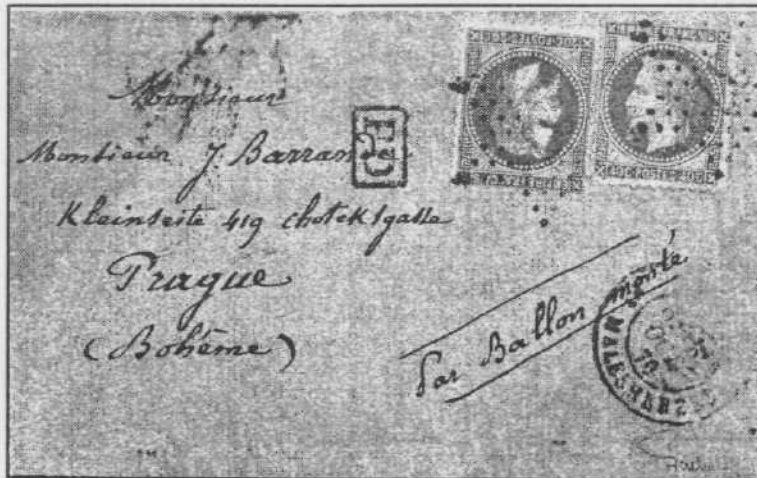 Monsieur
Monsieur J. Barrande
Kleinseite 419 choteksgasse
Prague
(Bohême)
PD
Par Ballon monté
MALESHERB